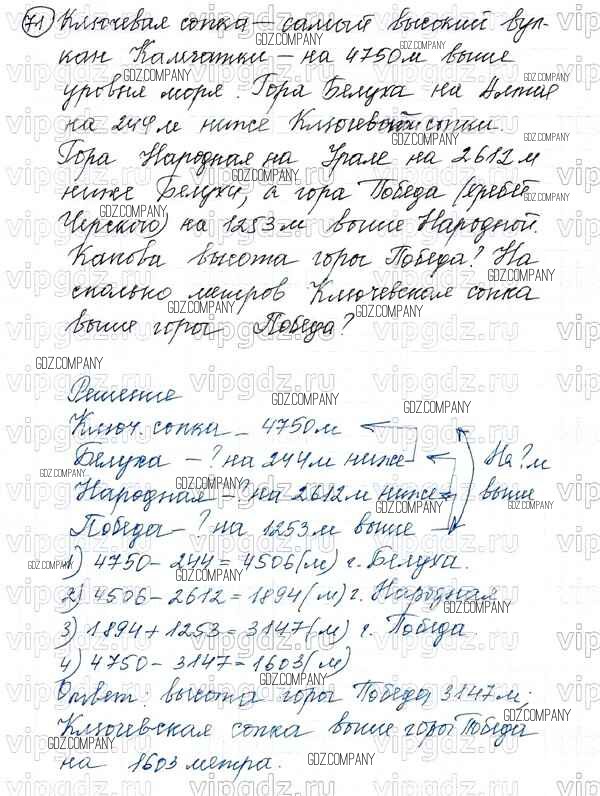 71 Ключевая сопка – самый высокий вул-
кан Камчатки – на 4750 м выше
уровня моря. Гора Белуха на Алтае
на 244 м ниже Ключевской сопки.
Гора Народная на Урале на 2612 м
ниже Белухи, а гора Победа (хребет
Черского) на 1253 м выше Народной.
Какова высота горы Победа? На
сколько метров Ключевская сопка
выше горы Победа?
Решение
Ключ. сопка – 4750 м
Белуха – ? на 244 м ниже
Народная – ? на 2612 м ниже
Победа – ? на 1253 м выше
На ? м
выше
1) 4750 – 244 = 4506 (м) г. Белуха.
2) 4506 – 2612 = 1894 (м) г. Народная
3) 1894 + 1253 = 3147 (м) г. Победа.
4) 4750 – 3147 = 1603 (м)
Ответ: высота горы Победа 3147 м;
Ключевская сопка выше горы Победа
на 1603 метра.
vipgdz.ru
GDZ.COMPANY